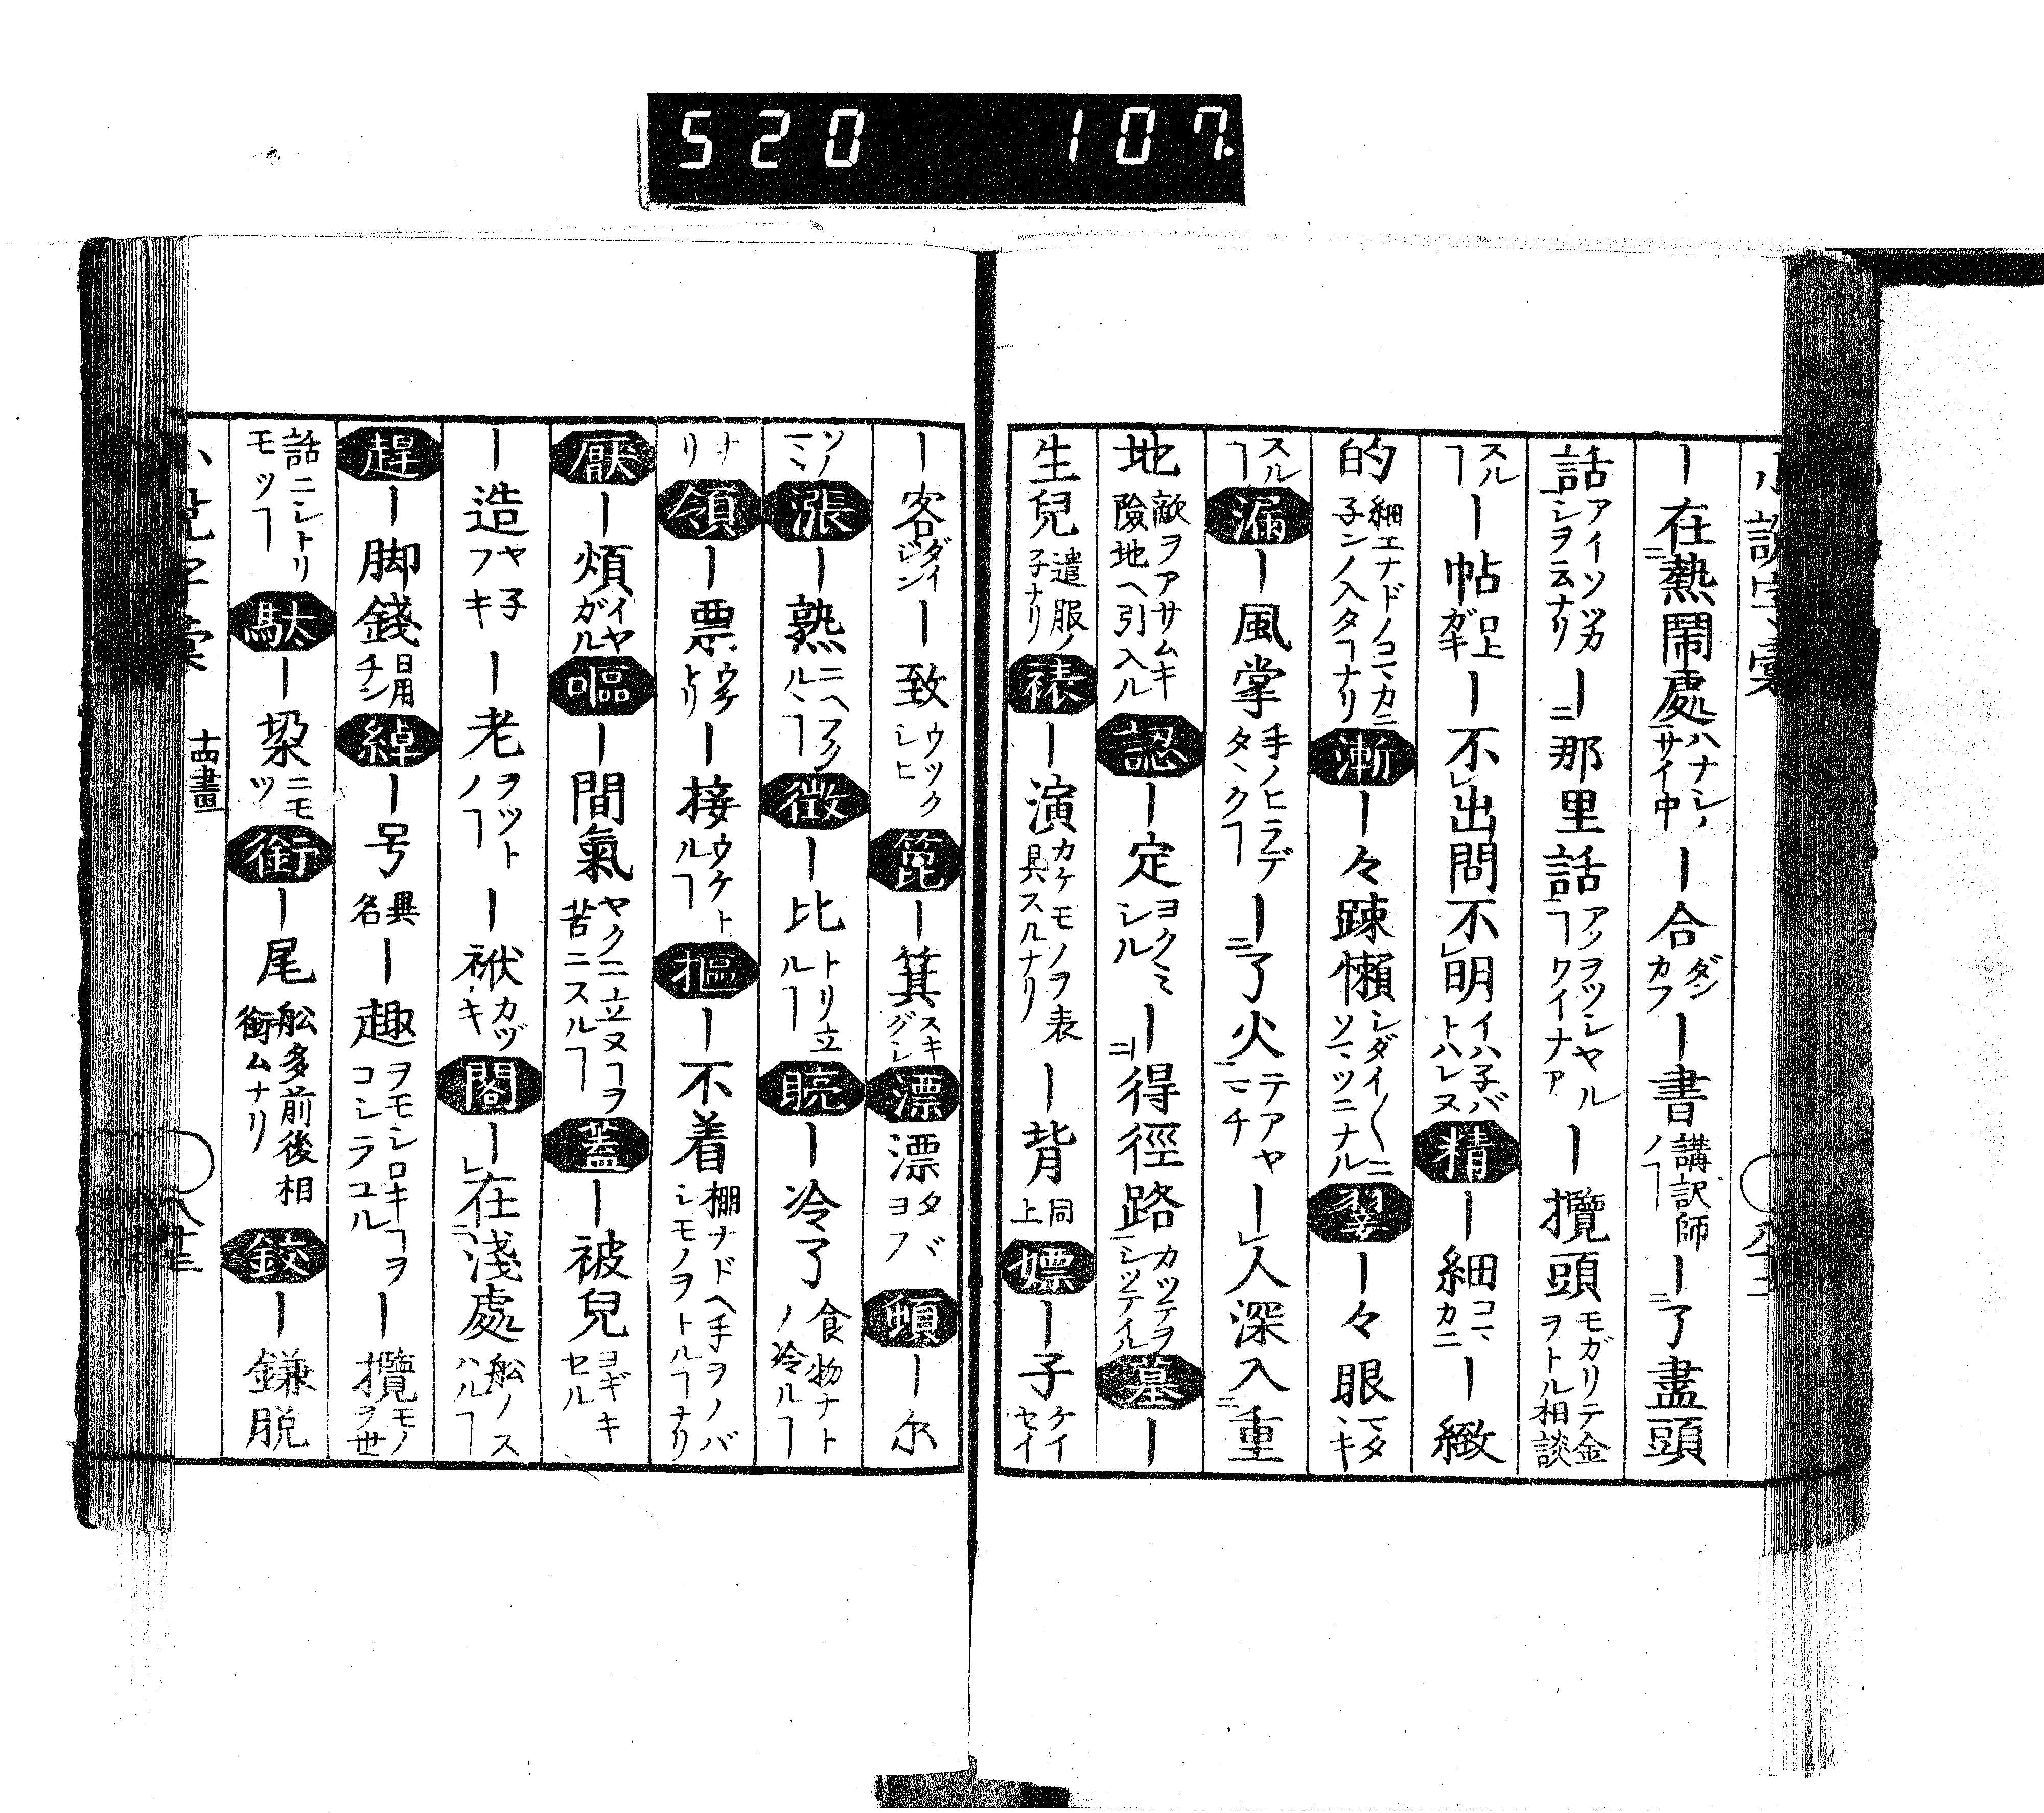 520 107
｜在熱鬧處ハナシノサイ中｜合ダンカフ｜書講訳師ノヿ｜了盡頭
話アイソツカシヲ云ナリ｜那里話アノヲツシヤルヿワイナア｜攬頭モガリテ金ヲトル相談
スルヿ｜帖口上ガキ｜不出問不明イハ子バトハレヌ精｜細コヽカニ｜緻
的細エナドノコマカニ子ンノ入タヿナリ漸｜々踈懶シダイ〱ニソヽツニナル翣｜々眼マタヽキ
スルヿ漏｜風掌手ノヒラデタヽクヿ｜了火テアヤマチ｜人深入重
地敵ヲアサムキ險地ヘ引入ル認｜定ヨクミシル｜得徑路カツテヲシツテイル墓｜
生兒遣服ノ子ナリ裱｜演カケモノヲ表具スルナリ｜背同上嫖｜子ケイセイ
｜客ダイジン｜致ウツクシヒ箆｜箕スキグシ漂漂タヨフバ頔｜尓
ソノミヽ漲｜熟ニヘアカルヽヿ徴｜比トリ立ルヿ｜冷了食物ナトノ冷ルヿ
ナリ領｜票ウケトリ｜接ウケトルヿ摳｜不着棚ナドヘ手ヲノバシモノヲトルヿナリ
厭｜煩イヤガル嘔｜間氣ヤクニ立ヌヿヲ苦ニスルヿ蓋｜被兒ヨギキセル
｜造ヤ子フキ｜老ヲツトノヿ｜袱カヅキ閣｜在淺處舩ノスハルヿ
趕｜脚錢日用チン綽｜号異名｜趣ヲモシロキヿヲコシラユル｜攬モノヲ世
話ニシトリモツヿ馱｜梁ニモツ銜｜尾舩多前後相銜ムナリ鉸｜鎌脱
十四畫